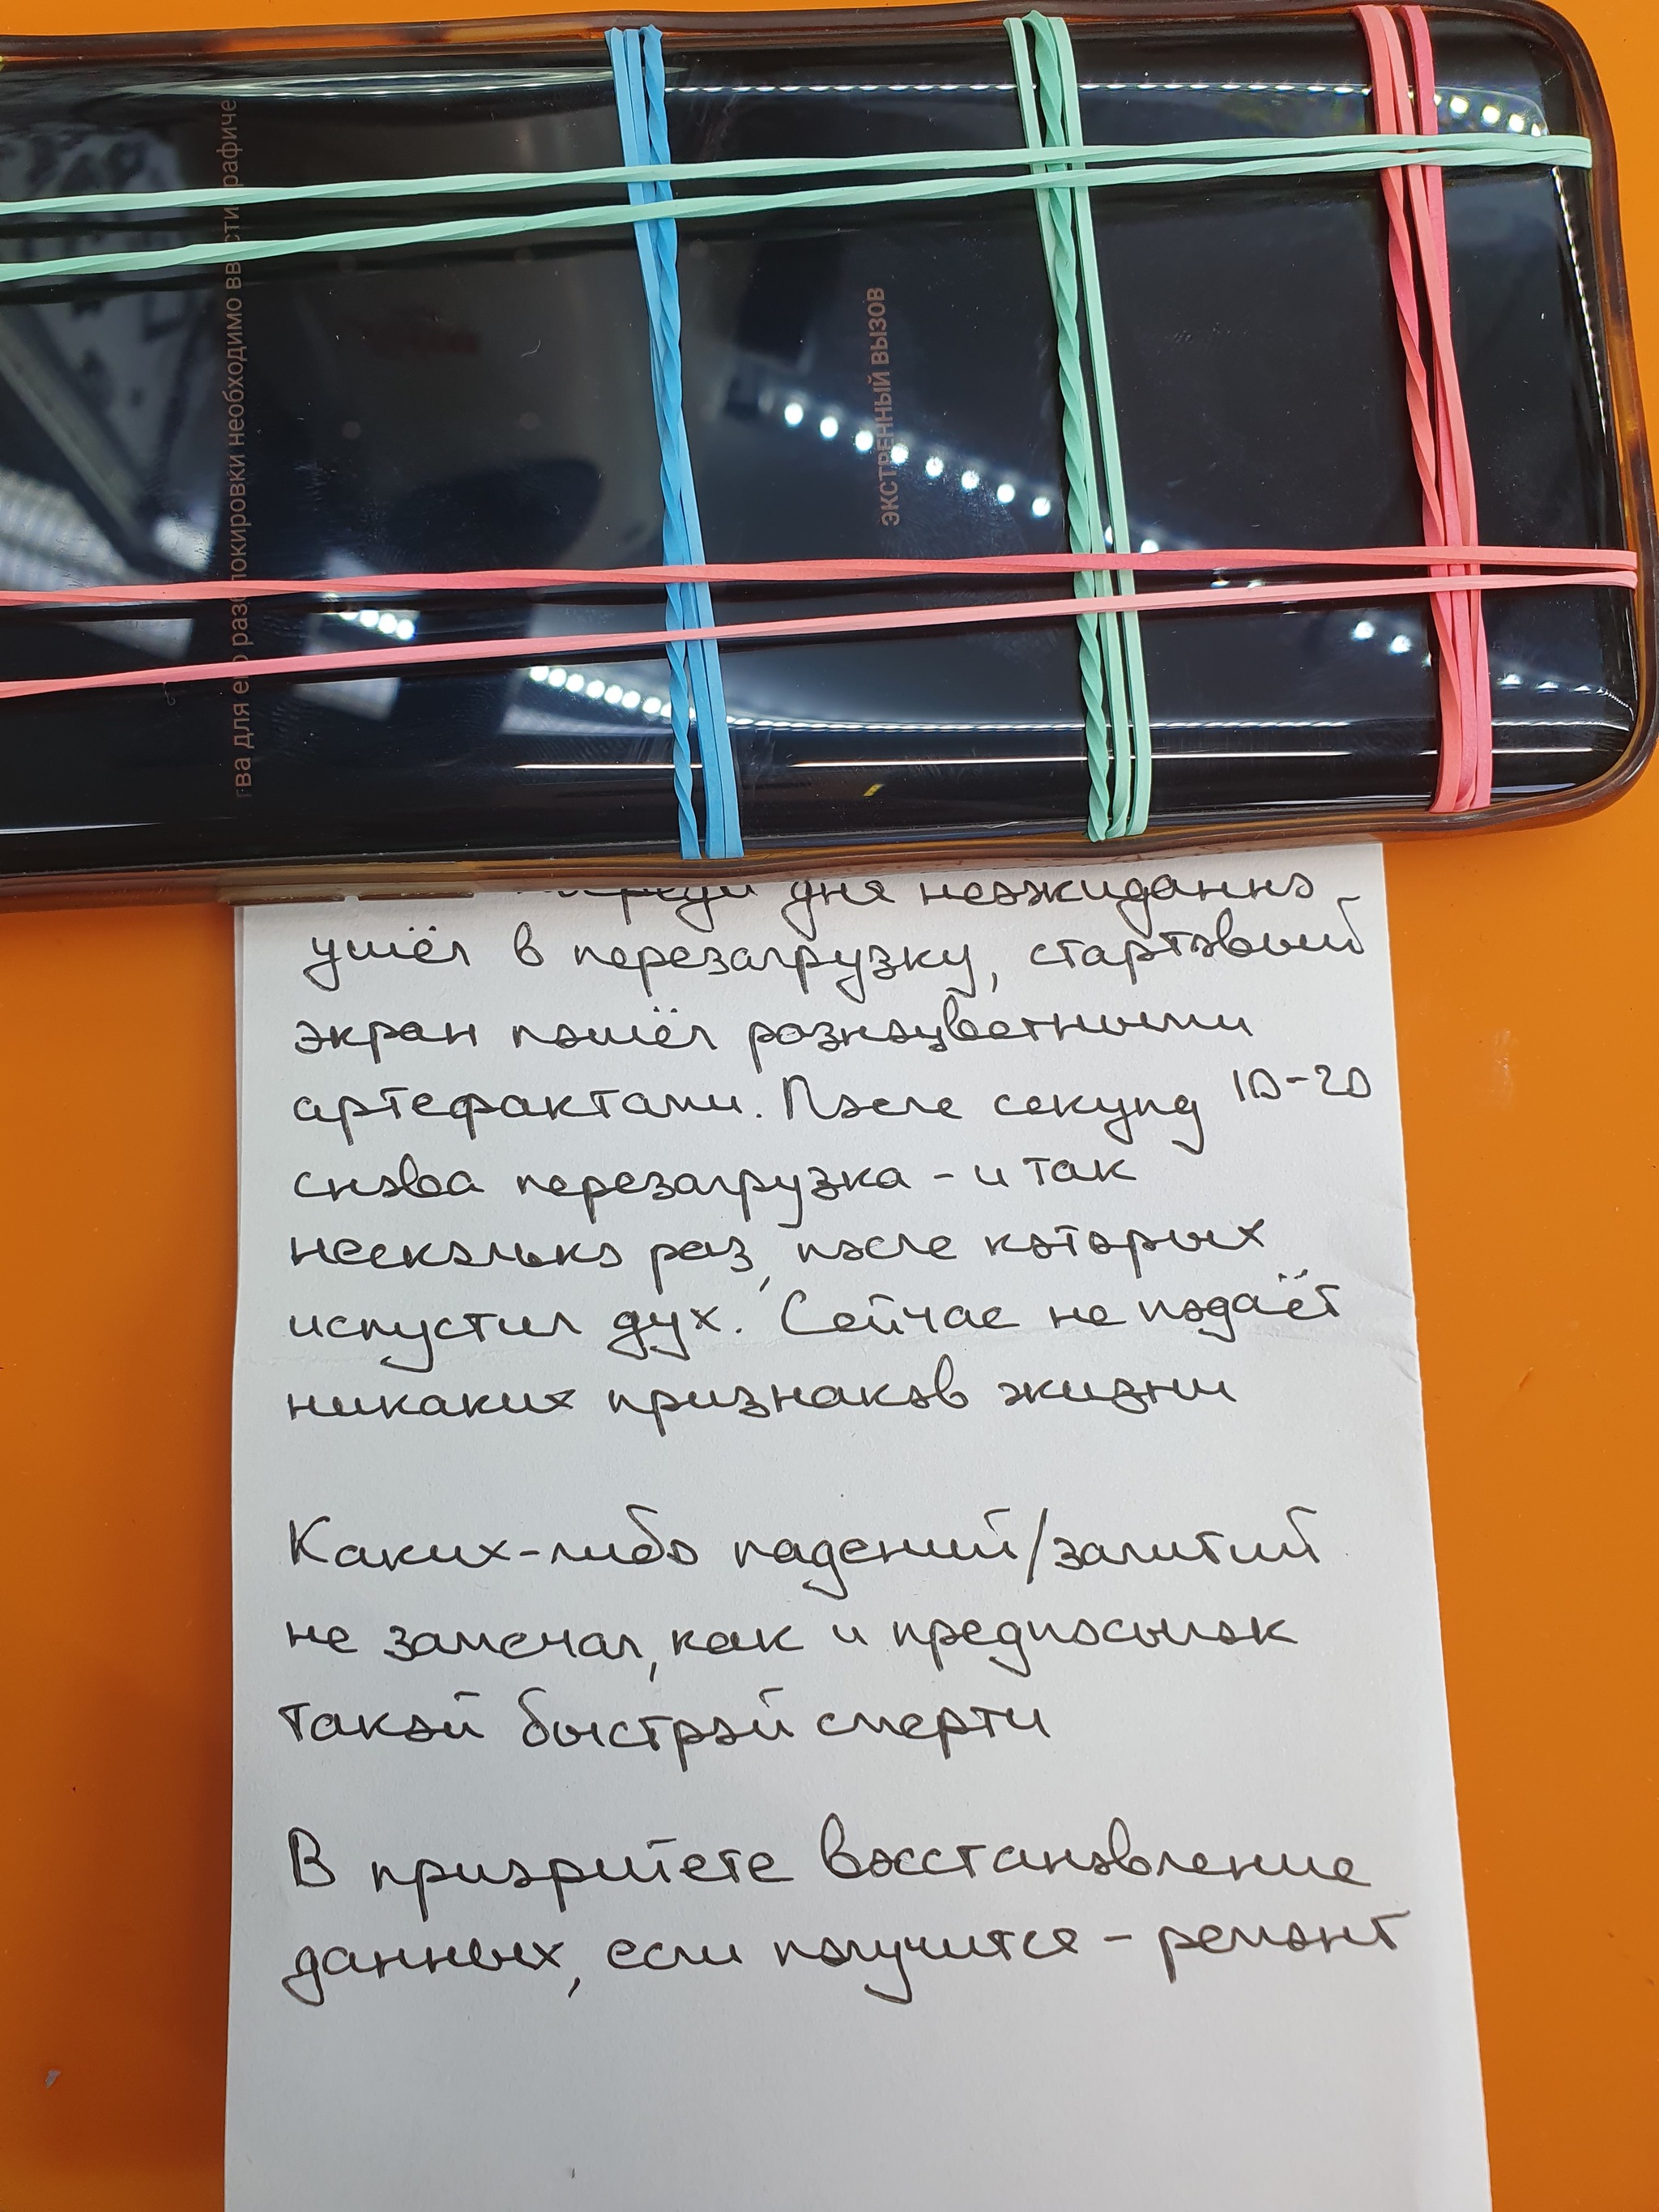 тва для его разблокировки необходимо ввести графиче
ЭКСТРЕННЫЙ ВЫЗОВ
дня неожиданно
ушёл в перезагрузку, стартовый
экран пошёл разноцветными
артефактами. После секунд 10-20
снова перезагрузка - и так
несколько раз, после которых
испустил дух. Сейчас не подаёт
никаких признаков жизни
Каких-либо падений/залитий
не замечал, как и предпосылок
такой быстрой смерти
В приоритете восстановление
данных, если получится - ремонт